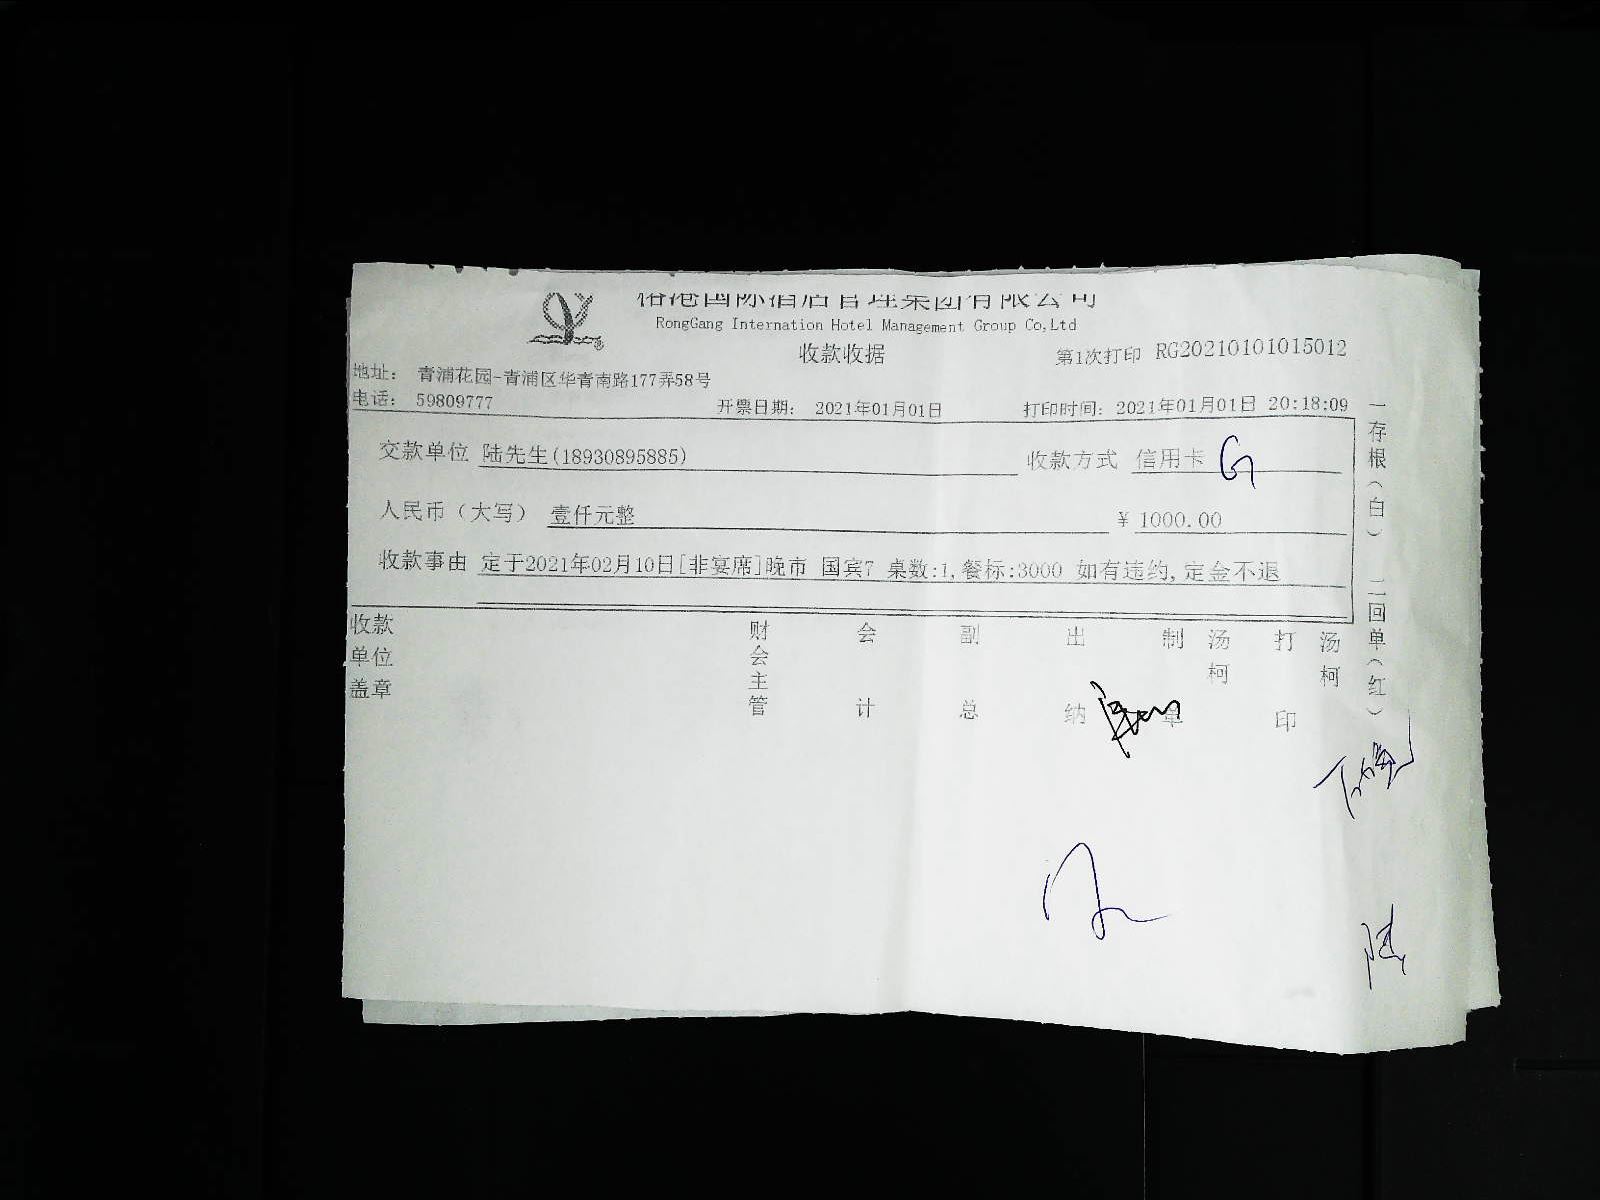 榕港国际酒店管理集团有限公司
RongGang Internation Hotel Management Group Co,Ltd
收款收据
第1次打印 RG20210101015012
地址： 青浦花园-青浦区华青南路177弄58号
电话： 59809777 开票日期： 2021年01月01日 打印时间：2021年01月01日 20:18:09
交款单位 陆先生(18930895885) 收款方式 信用卡
人民币（大写） 壹仟元整 ¥ 1000.00
收款事由 定于2021年02月10日[非宴席]晚市 国宾7 桌数:1,餐标:3000 如有违约,定金不退
收款单位盖章 财会主管 会计 副总 出纳 制单 汤柯 打印 汤柯
一存根（白） 二回单（红）
陆